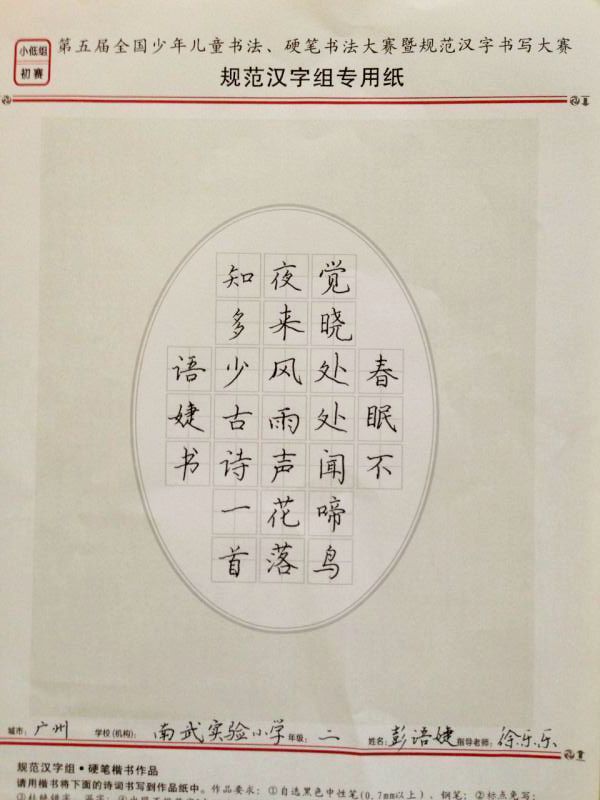 小低组
初赛
第五届全国少年儿童书法、硬笔书法大赛暨规范汉字书写大赛
规范汉字组专用纸
春眠不
觉晓处处闻啼鸟
夜来风雨声花落
知多少古诗一首
语婕书
城市：广州 学校(机构)：南武实验小学 年级：二 姓名：彭语婕 指导老师：徐乐乐
规范汉字组·硬笔楷书作品
请用楷书将下面的诗词书写到作品纸中。作品要求：①自选黑色中性笔(0.7mm以上)、钢笔；②标点免写；